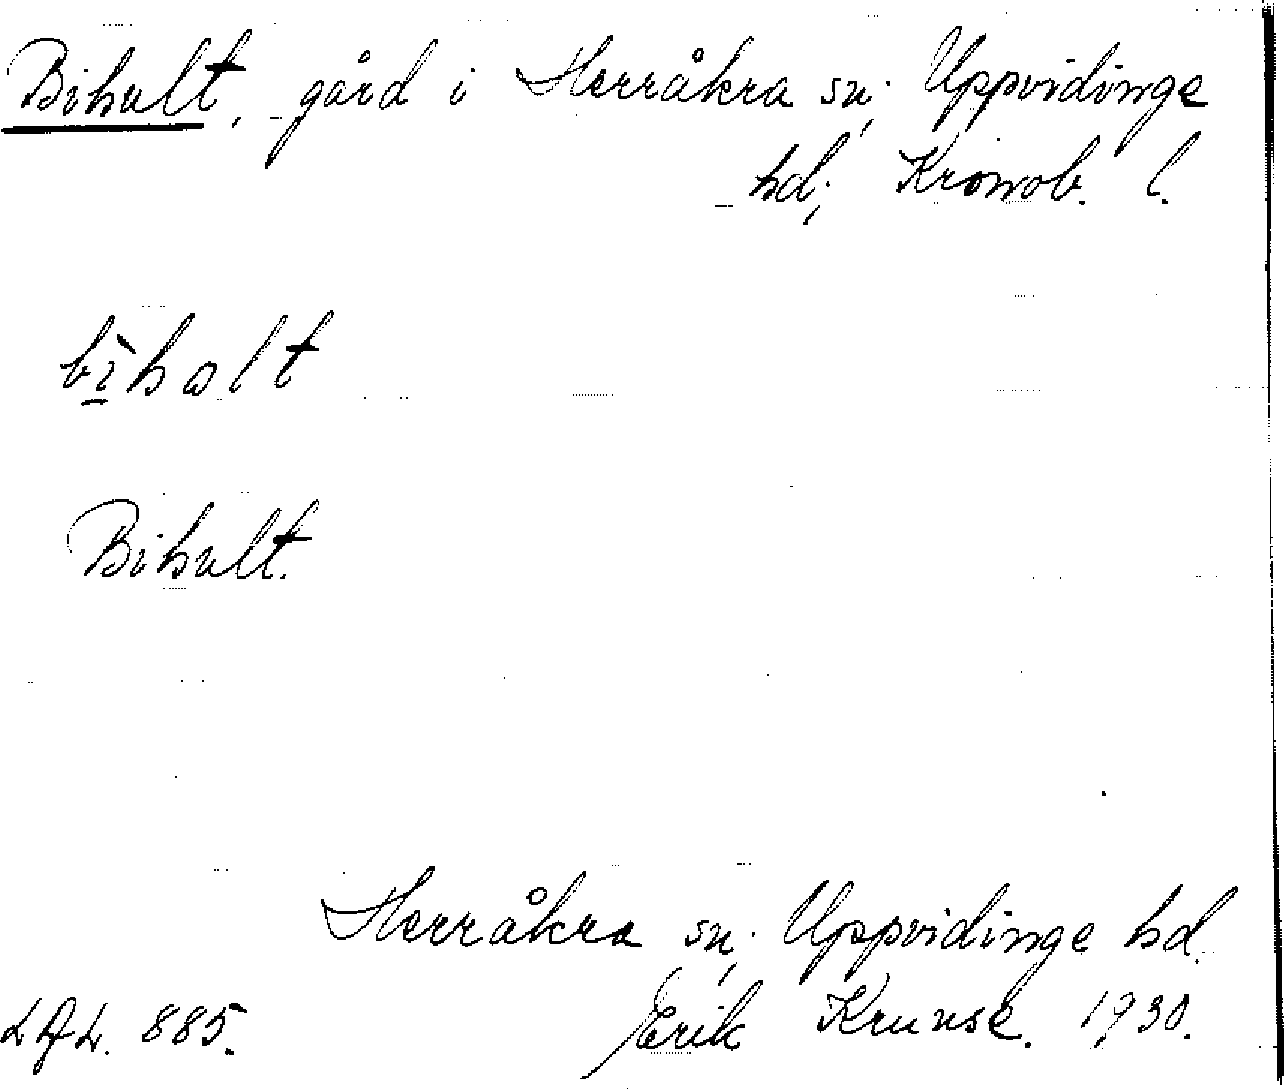 Bihult, gård i Herråkra sn, Uppvidinge
hd, Kronob. l.
bìholt
Bihult.
Herråkra sn, Uppvidinge hd.
LAL. 885. Erik Kruuse. 1930.